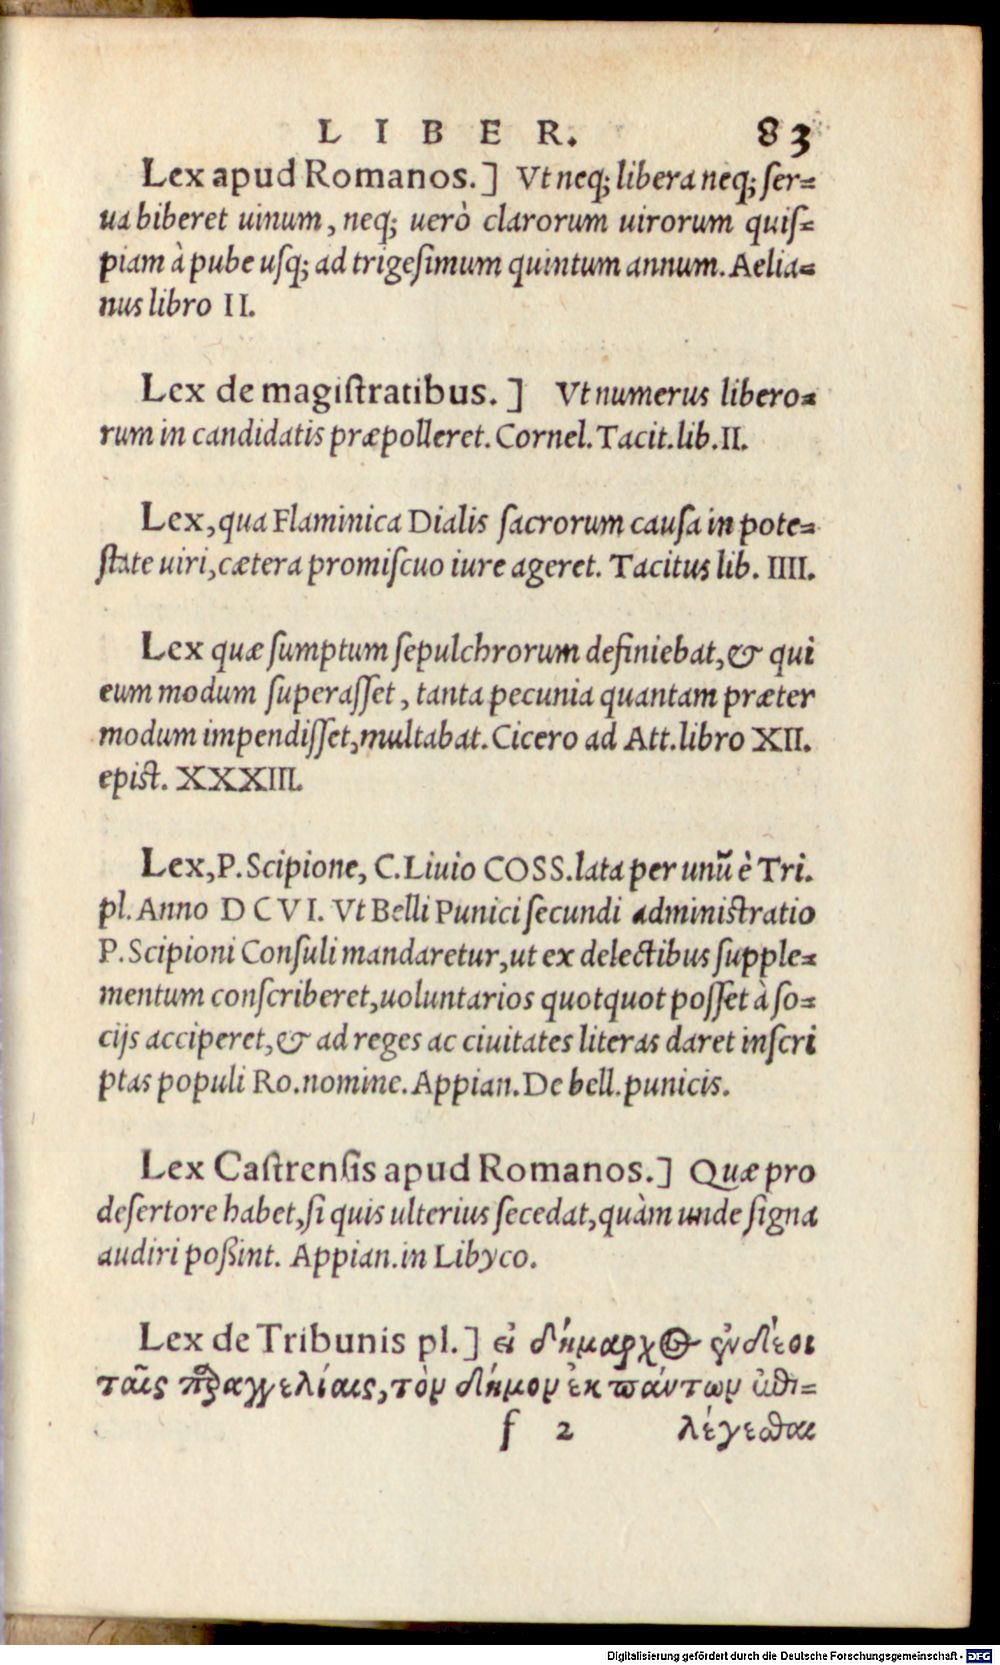 LIBER. 83
Lex apud Romanos.] Vt neq; libera neq; ser=
ua biberet uinum, neq; uerò clarorum uirorum quis=
piam à pube usq; ad trigesimum quintum annum. Aelia=
nus libro II.
Lex de magistratibus.] Vt numerus libero=
rum in candidatis præpolleret. Cornel. Tacit. lib. II.
Lex, qua Flaminica Dialis sacrorum causa in pote=
state uiri, cætera promiscuo iure ageret. Tacitus lib. IIII.
Lex quæ sumptum sepulchrorum definiebat, & qui
eum modum superasset, tanta pecunia quantam præter
modum impendisset, multabat. Cicero ad Att. libro XII.
epist. XXXIII.
Lex, P. Scipione, C. Liuio COSS. lata per unũ è Tri.
pl. Anno DCVI. Vt Belli Punici secundi administratio
P. Scipioni Consuli mandaretur, ut ex delectibus supple=
mentum conscriberet, uoluntarios quotquot posset à so=
cijs acciperet, & ad reges ac ciuitates literas daret inscri
ptas populi Ro. nomine. Appian. De bell. punicis.
Lex Castrensis apud Romanos.] Quæ pro
desertore habet, si quis ulterius secedat, quàm unde signa
audiri poßint. Appian. in Libyco.
Lex de Tribunis pl.] εἰ δήμαρχος ἐνδέοι
ταῖς παραγγελίαις, τὸν δῆμον ἐκ πάντων ἐπι=
f 2 λέγεσθαι
Digitalisierung gefördert durch die Deutsche Forschungsgemeinschaft - DFG